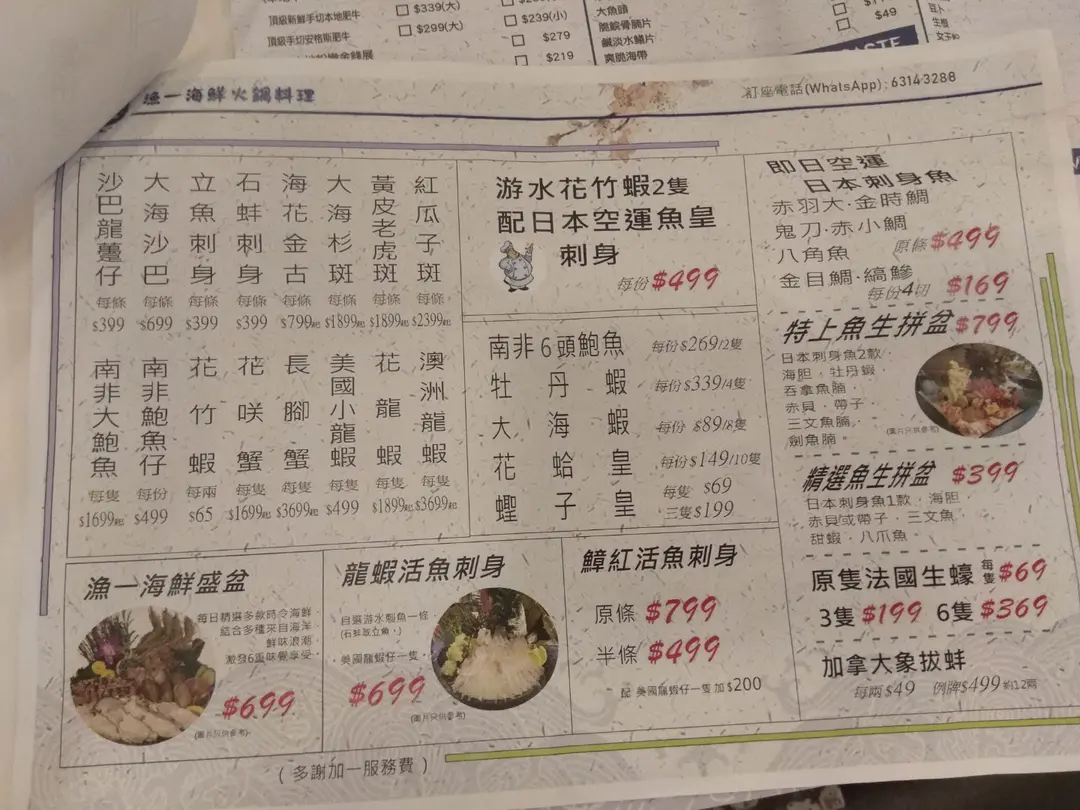 頂級新鮮手切本地肥牛
$339(大)
$239(小)
頂級手切安格斯肥牛
$299(大)
$279
$219
大魚頭
脆鯇骨腩片
鹹淡水鱔片
爽脆海帶
$49
漁一海鮮火鍋料理
訂座電話(WhatsApp): 6314 3288
沙巴龍躉仔 每條 $399
大海沙巴 每條 $699
立魚刺身 每條 $399
石蚌刺身 每條 $399
海花金古 每條 $799起
大海杉斑 每條 $1899起
黃皮老虎斑 每條 $1899起
紅瓜子斑 每條 $2399起
南非大鮑魚 每隻 $1699起
南非鮑魚仔 每份 $499
花竹蝦 每兩 $65
花咲蟹 每隻 $1699起
長腳蟹 每隻 $3699起
美國小龍蝦 每隻 $499
花龍蝦 每隻 $1899起
澳洲龍蝦 每隻 $3699起
游水花竹蝦2隻
配日本空運魚皇
刺身
每份 $499
南非6頭鮑魚 每份 $269/2隻
牡丹蝦 每份 $339/4隻
大海蝦 每份 $89/8隻
花蛤皇 每份 $149/10隻
蟶子皇 每隻 $69
三隻 $199
即日空運
日本刺身魚
赤羽大·金時鯛
鬼刀·赤小鯛
八角魚 原條 $499
金目鯛·縞鰺
每份4切 $169
特上魚生拼盆 $799
日本刺身魚2款·
海胆·牡丹蝦·
吞拿魚腩·
赤貝·帶子·
三文魚腩·
劍魚腩。
(圖片只供參考)
精選魚生拼盆 $399
日本刺身魚1款·海胆·
赤貝或帶子·三文魚·
甜蝦·八爪魚。
原隻法國生蠔 每隻 $69
3隻 $199 6隻 $369
加拿大象拔蚌
每兩 $49 例牌 $499 約12兩
漁一海鮮盛盆
每日精選多款時令海鮮·
結合多種來自海洋
鮮味浪潮·
激發6重味覺享受。
$699
(圖片只供參考)
龍蝦活魚刺身
自選游水魚一條
·美國龍蝦仔一隻·
$699
(圖片只供參考)
鱆紅活魚刺身
原條 $799
半條 $499
配 美國龍蝦仔一隻 加 $200
(多謝加一服務費)